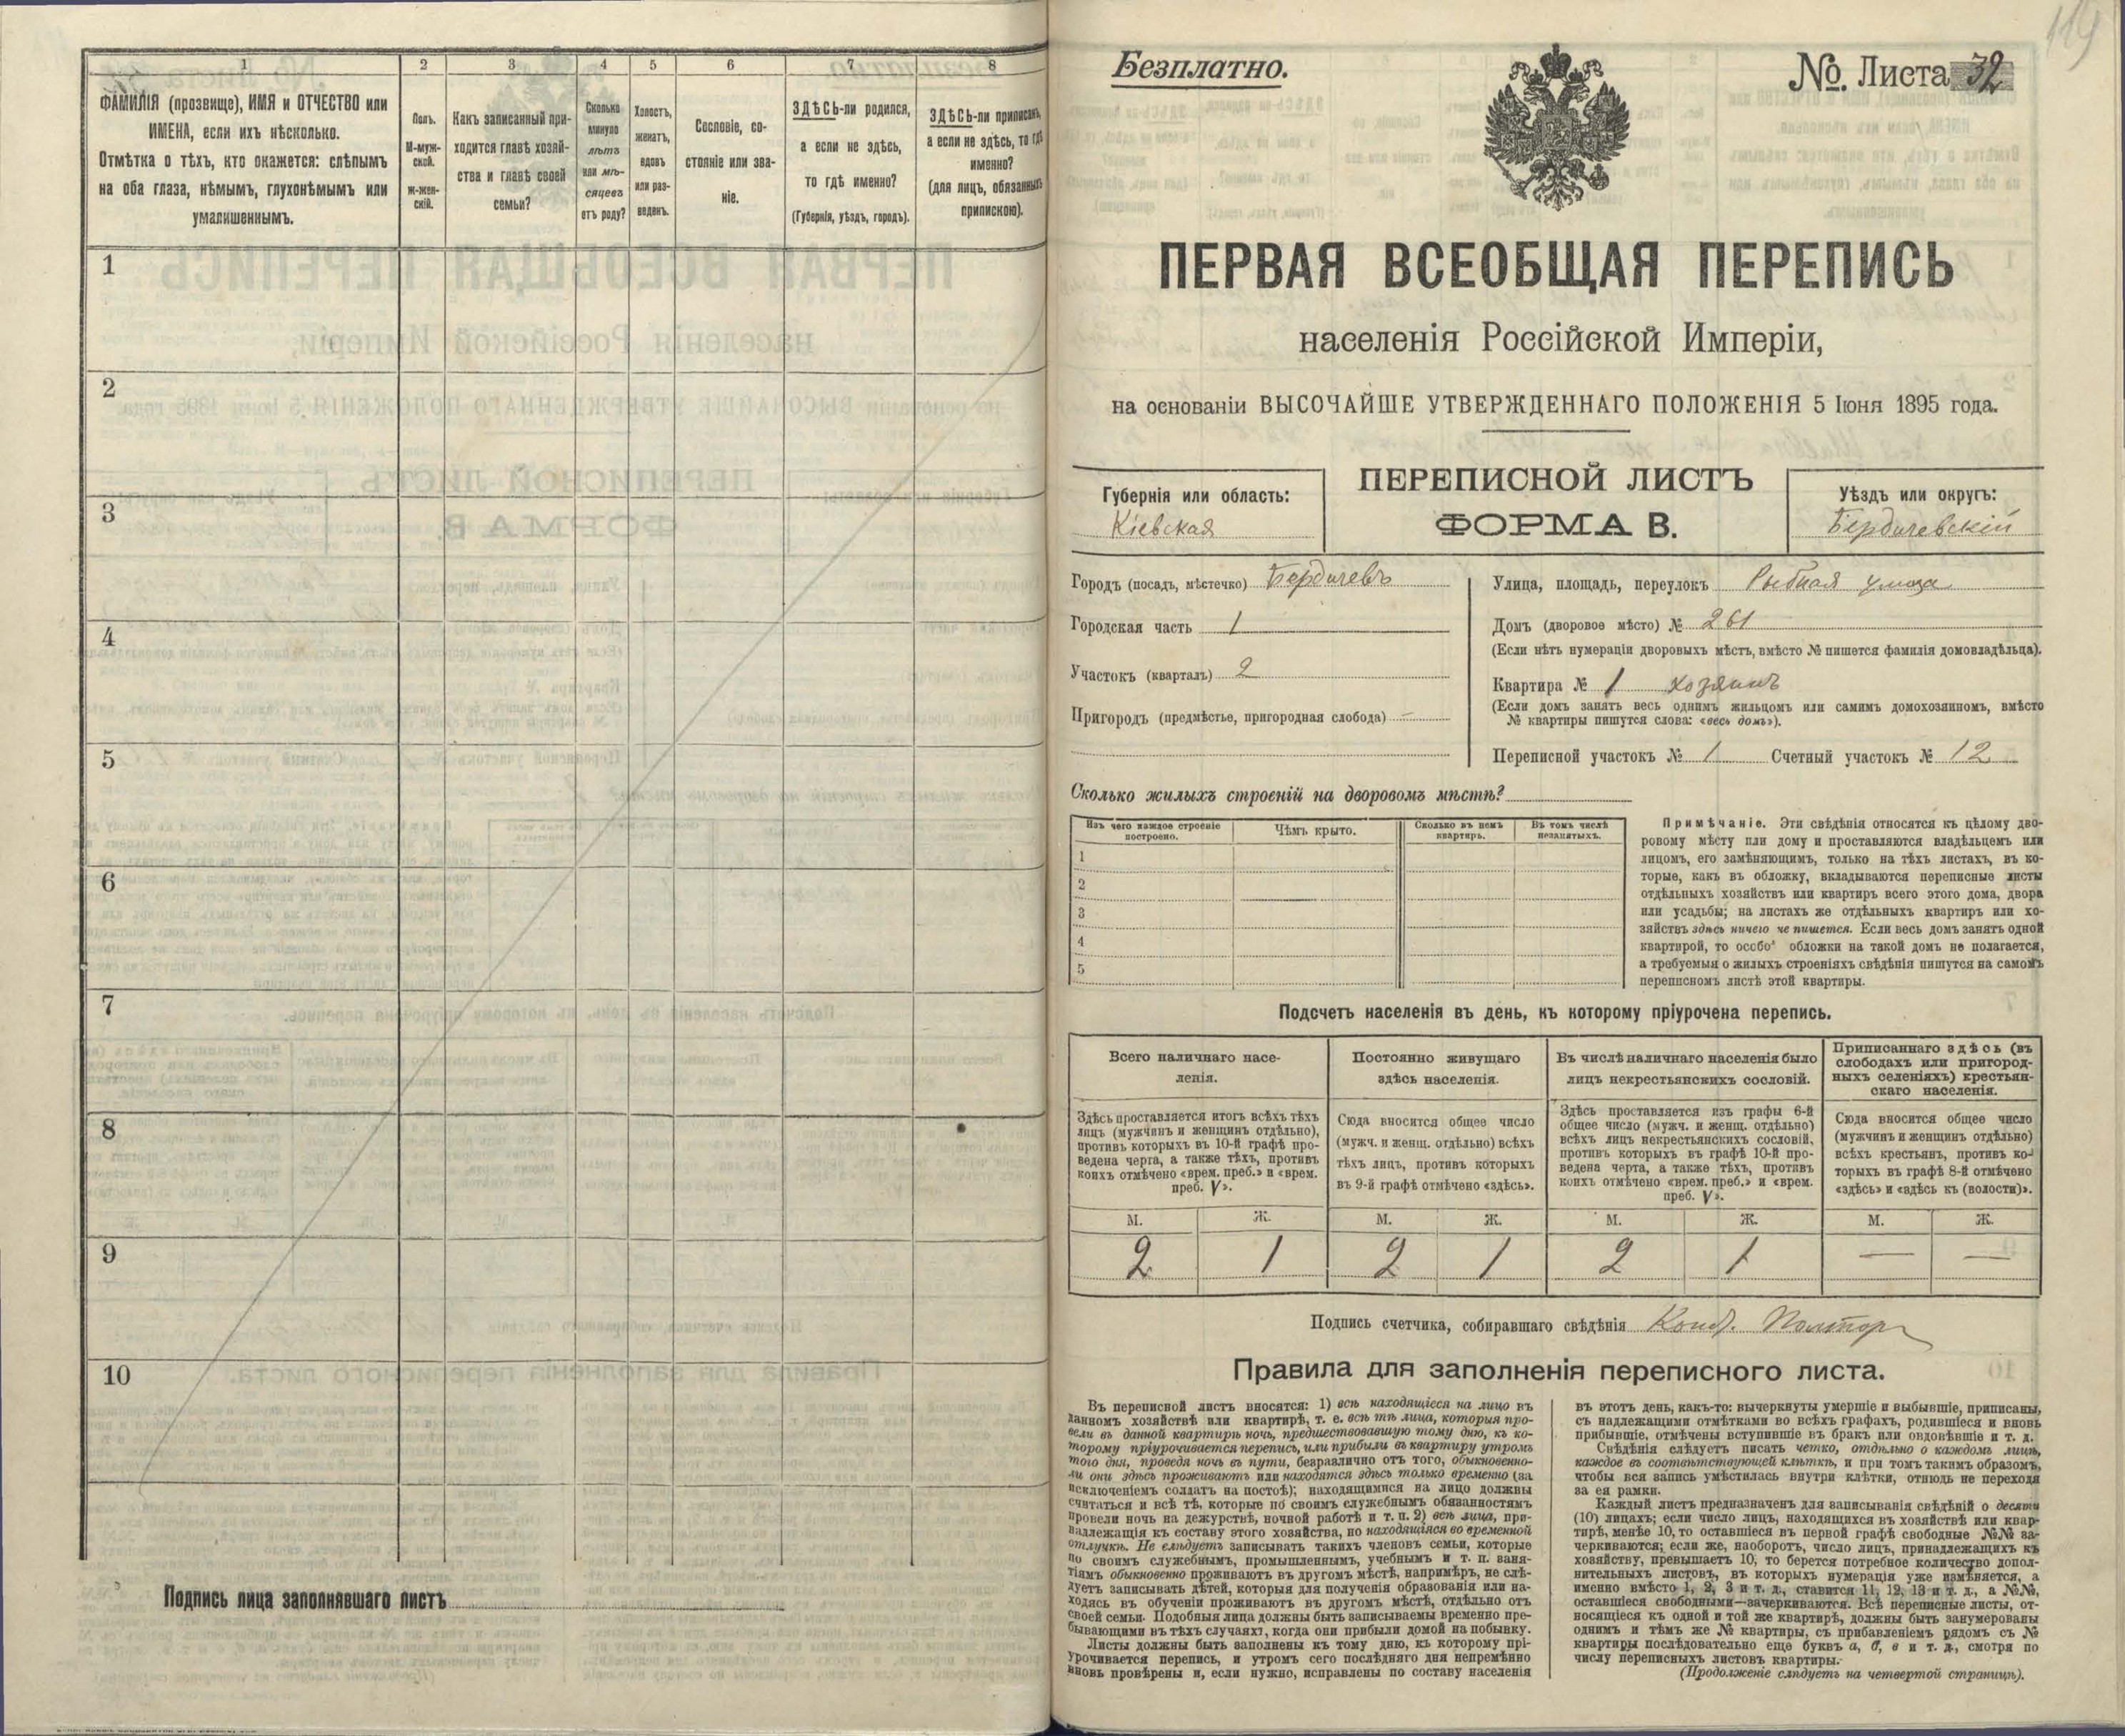 1
2
3
4
5
6
7
8
ФАМИЛІЯ (прозвище), ИМЯ и ОТЧЕСТВО или
ИМЕНА, если ихъ нѣсколько.
Отмѣтка о тѣхъ, кто окажется: слѣпымъ
на оба глаза, нѣмымъ, глухонѣмымъ или
умалишеннымъ.
Полъ.
М-муж-
ской.
ж-жен-
скій.
Какъ записанный при-
ходится главѣ хозяй-
ства и главѣ своей
семьи?
Сколько
минуло
лѣтъ
или мѣ-
сяцевъ
отъ роду?
Холостъ,
женатъ,
вдовъ
или раз-
веденъ.
Сословіе, со-
стояніе или зва-
ніе.
ЗДѢСЬ-ли родился,
а если не здѣсь,
то гдѣ именно?
(Губернія, уѣздъ, городъ).
ЗДѢСЬ-ли приписанъ,
а если не здѣсь, то гдѣ
именно?
(для лицъ, обязанныхъ
припискою).
1
2
3
4
5
6
7
8
9
10
Подпись лица заполнявшаго листъ
119
Безплатно.
№. Листа 32
ПЕРВАЯ ВСЕОБЩАЯ ПЕРЕПИСЬ
населенія Россійской Имперіи,
на основаніи ВЫСОЧАЙШЕ УТВЕРЖДЕННАГО ПОЛОЖЕНІЯ 5 Іюня 1895 года.
Губернія или область:
Кіевская
ПЕРЕПИСНОЙ ЛИСТЪ
ФОРМА В.
Уѣздъ или округъ:
Бердичевскій
Городъ (посадъ, мѣстечко) Бердичевъ
Городская часть 1
Участокъ (кварталъ) 2
Пригородъ (предмѣстье, пригородная слобода) —
Улица, площадь, переулокъ Рыбная улица
Домъ (дворовое мѣсто) № 261
(Если нѣтъ нумераціи дворовыхъ мѣстъ, вмѣсто № пишется фамилія домовладѣльца).
Квартира № 1 хозяинъ
(Если домъ занятъ весь однимъ жильцомъ или самимъ домохозяиномъ, вмѣсто
№ квартиры пишутся слова: «весь домъ»).
Переписной участокъ № 1 Счетный участокъ № 12
Сколько жилыхъ строеній на дворовомъ мѣстѣ?
Изъ чего каждое строеніе
построено.
Чѣмъ крыто.
Сколько въ немъ
квартиръ.
Въ томъ числѣ
незанятыхъ.
1
2
3
4
5
Примѣчаніе. Эти свѣдѣнія относятся къ цѣлому дво-
ровому мѣсту или дому и проставляются владѣльцемъ или
лицомъ, его замѣняющимъ, только на тѣхъ листахъ, въ ко-
торые, какъ въ обложку, вкладываются переписные листы
отдѣльныхъ хозяйствъ или квартиръ всего этого дома, двора
или усадьбы; на листахъ же отдѣльныхъ квартиръ или хо-
зяйствъ здѣсь ничего не пишется. Если весь домъ занятъ одной
квартирой, то особой обложки на такой домъ не полагается,
а требуемыя о жилыхъ строеніяхъ свѣдѣнія пишутся на самомъ
переписномъ листѣ этой квартиры.
Подсчетъ населенія въ день, къ которому пріурочена перепись.
Всего наличнаго насе-
ленія.
Здѣсь проставляется итогъ всѣхъ тѣхъ
лицъ (мужчинъ и женщинъ отдѣльно),
противъ которыхъ въ 10-й графѣ про-
ведена черта, а также тѣхъ, противъ
коихъ отмѣчено «врем. преб.» и «врем.
преб. V».
Постоянно живущаго
здѣсь населенія.
Сюда вносится общее число
(мужч. и женщ. отдѣльно) всѣхъ
тѣхъ лицъ, противъ которыхъ
въ 9-й графѣ отмѣчено «здѣсь».
Въ числѣ наличнаго населенія было
лицъ некрестьянскихъ сословій.
Здѣсь проставляется изъ графы 6-й
общее число (мужч. и женщ. отдѣльно)
всѣхъ лицъ некрестьянскихъ сословій,
противъ которыхъ въ графѣ 10-й про-
ведена черта, а также тѣхъ, противъ
коихъ отмѣчено «врем. преб.» и «врем.
преб. V».
Приписаннаго здѣсь (въ
слободахъ или пригород-
ныхъ селеніяхъ) крестьян-
скаго населенія.
Сюда вносится общее число
(мужчинъ и женщинъ отдѣльно)
всѣхъ крестьянъ, противъ ко-
торыхъ въ графѣ 8-й отмѣчено
«здѣсь» и «здѣсь къ (волости)».
М. Ж. М. Ж. М. Ж. М. Ж.
2 1 2 1 2 1 — —
Подпись счетчика, собиравшаго свѣдѣнія
Правила для заполненія переписного листа.
Въ переписной листъ вносятся: 1) всѣ находящіеся на лицо въ
данномъ хозяйствѣ или квартирѣ, т. е. всѣ тѣ лица, которыя про-
вели въ данной квартирѣ ночь, предшествовавшую тому дню, къ ко-
торому пріурочивается перепись, или прибыли въ квартиру утромъ
того дня, проведя ночь въ пути, безразлично отъ того, обыкновенно-
ли они здѣсь проживаютъ или находятся здѣсь только временно (за
исключеніемъ солдатъ на постоѣ); находящимися на лицо должны
считаться и всѣ тѣ, которые по своимъ служебнымъ обязанностямъ
провели ночь на дежурствѣ, ночной работѣ и т. п. 2) всѣ лица, при-
надлежащія къ составу этого хозяйства, но находящіяся во временной
отлучкѣ. Не слѣдуетъ записывать такихъ членовъ семьи, которые
по своимъ служебнымъ, промышленнымъ, учебнымъ и т. п. заня-
тіямъ обыкновенно проживаютъ въ другомъ мѣстѣ, напримѣръ, не слѣ-
дуетъ записывать дѣтей, которыя для полученія образованія или на-
ходясь въ обученіи проживаютъ въ другомъ мѣстѣ, отдѣльно отъ
своей семьи. Подобныя лица должны быть записываемы временно пре-
бывающими въ тѣхъ случаяхъ, когда они прибыли домой на побывку.
Листы должны быть заполнены къ тому дню, къ которому прі-
урочивается перепись, и утромъ сего послѣдняго дня непремѣнно
вновь провѣрены и, если нужно, исправлены по составу населенія
въ этотъ день, какъ-то: вычеркнуты умершіе и выбывшіе, приписаны,
съ надлежащими отмѣтками во всѣхъ графахъ, родившіеся и вновь
прибывшіе, отмѣчены вступившіе въ бракъ или овдовѣвшіе и т. д.
Свѣдѣнія слѣдуетъ писать четко, отдѣльно о каждомъ лицѣ,
каждое въ соотвѣтствующей клѣткѣ, и при томъ такимъ образомъ,
чтобы вся запись умѣстилась внутри клѣтки, отнюдь не переходя
за ея рамки.
Каждый листъ предназначенъ для записыванія свѣдѣній о десяти
(10) лицахъ; если число лицъ, находящихся въ хозяйствѣ или квар-
тирѣ, менѣе 10, то оставшіеся въ первой графѣ свободные №№ за-
черкиваются; если же, наоборотъ, число лицъ, принадлежащихъ къ
хозяйству, превышаетъ 10, то берется потребное количество допол-
нительныхъ листовъ, въ которыхъ нумерація уже измѣняется, а
именно вмѣсто 1, 2, 3 и т. д., ставится 11, 12, 13 и т. д., а №№,
оставшіеся свободными—зачеркиваются. Всѣ переписные листы, от-
носящіеся къ одной и той же квартирѣ, должны быть занумерованы
однимъ и тѣмъ же № квартиры, съ прибавленіемъ рядомъ съ №
квартиры послѣдовательно еще буквъ а, б, в и т. д., смотря по
числу переписныхъ листовъ квартиры.
(Продолженіе слѣдуетъ на четвертой страницѣ).